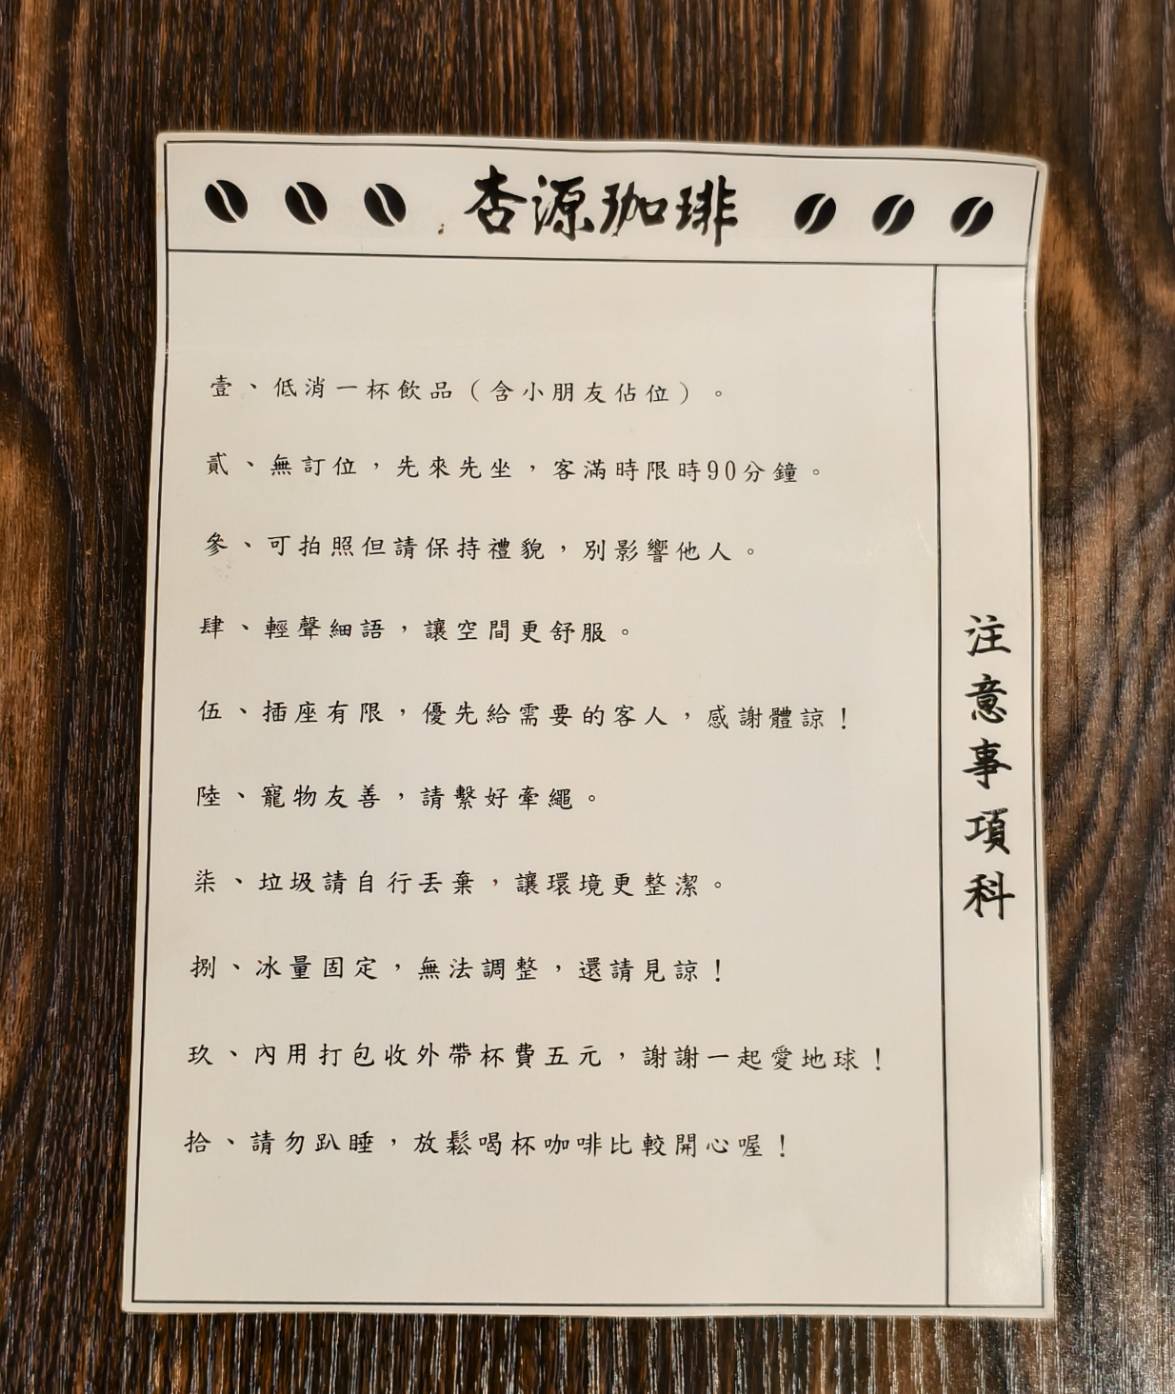 杏源珈琲
注意事項科
壹、低消一杯飲品（含小朋友佔位）。
貳、無訂位，先來先坐，客滿時限時90分鐘。
參、可拍照但請保持禮貌，別影響他人。
肆、輕聲細語，讓空間更舒服。
伍、插座有限，優先給需要的客人，感謝體諒！
陸、寵物友善，請繫好牽繩。
柒、垃圾請自行丟棄，讓環境更整潔。
捌、冰量固定，無法調整，還請見諒！
玖、內用打包收外帶杯費五元，謝謝一起愛地球！
拾、請勿趴睡，放鬆喝杯咖啡比較開心喔！